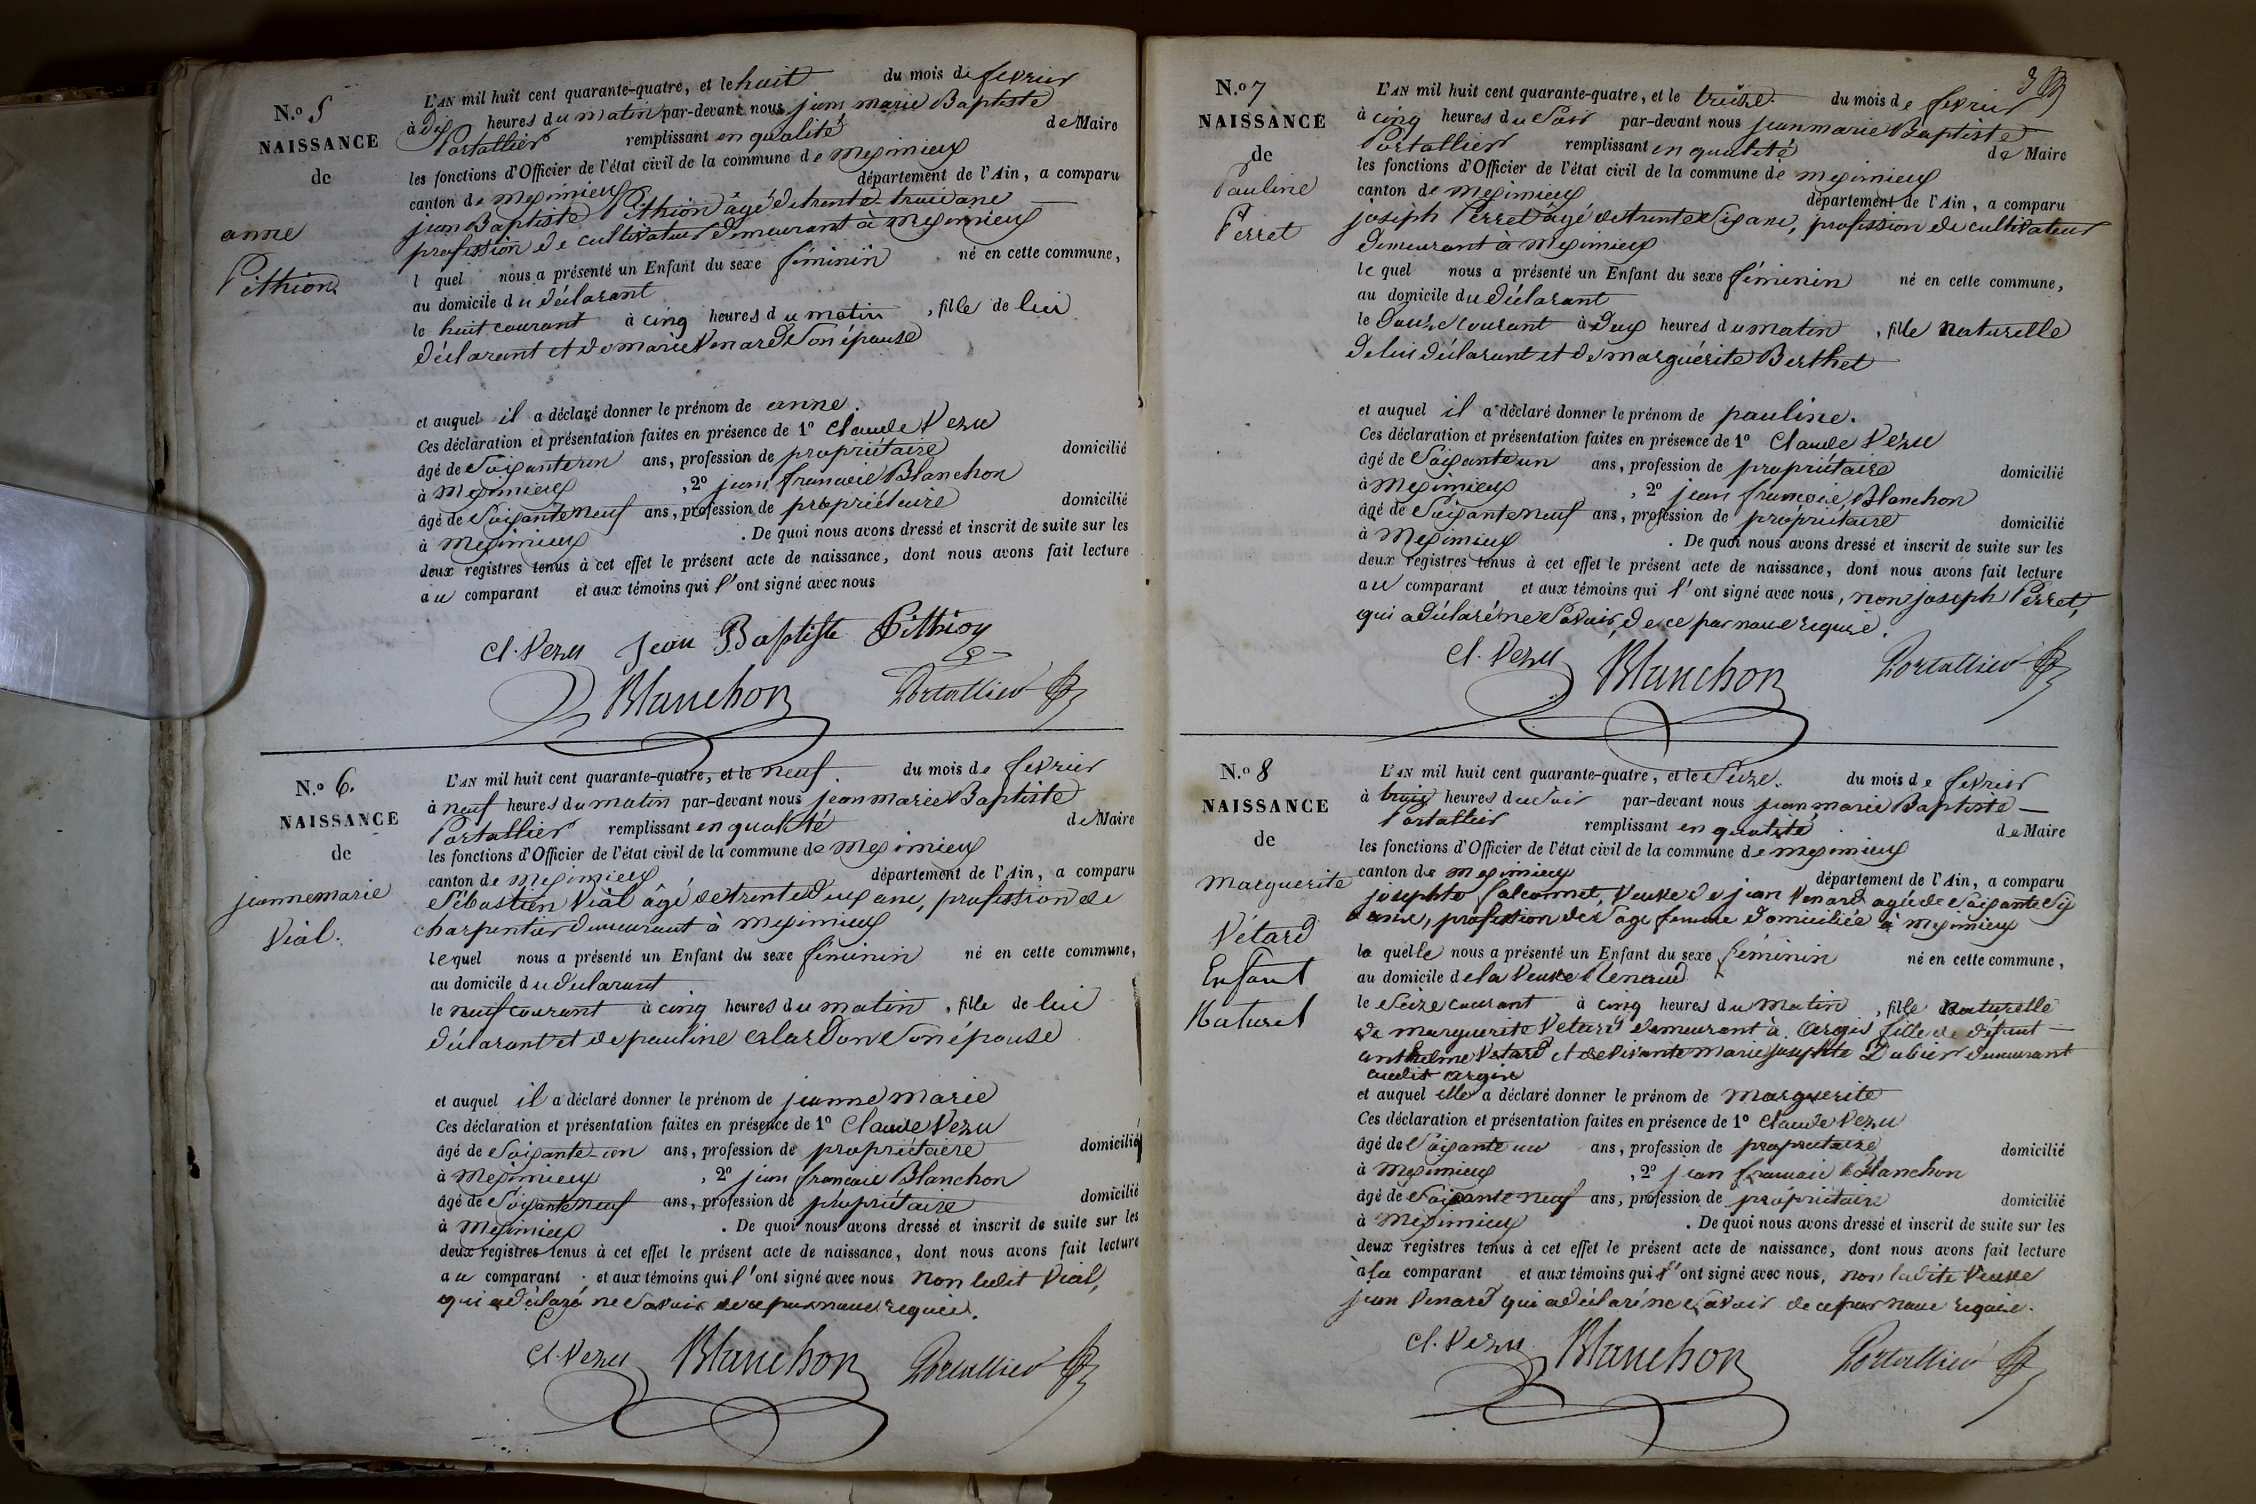 N.o 5
NAISSANCE
de
anne
Pithion
L'AN mil huit cent quarante-quatre, et le huit du mois de fevrier
à dix heures du matin par-devant nous jean marie Baptiste
Portallier remplissant en qualité de Maire
les fonctions d'Officier de l'état civil de la commune de meximieux
canton de meximieux département de l'Ain, a comparu
jean Baptiste Pithion âgé de trente trois ans
profession de cultivateur demeurant à meximieux
l quel nous a présenté un Enfant du sexe féminin né en cette commune,
au domicile du déclarant
le huit courant à cinq heures du matin, fille de lui
déclarant et de marie Venard son épouse
et auquel il a déclaré donner le prénom de anne.
Ces déclaration et présentation faites en présence de 1o Claude Vezu
âgé de soixante un ans, profession de propriétaire domicilié
à meximieux, 2o jean francois Blanchon
âgé de soixante neuf ans, profession de propriétaire domicilié
à meximieux. De quoi nous avons dressé et inscrit de suite sur les
deux registres tenus à cet effet le présent acte de naissance, dont nous avons fait lecture
au comparant et aux témoins qui l'ont signé avec nous
Cl. Vezu Jean Baptiste Pithion
Blanchon Portallier
N.o 6.
NAISSANCE
de
jeanne marie
Vial.
L'AN mil huit cent quarante-quatre, et le neuf. du mois de fevrier
à neuf heures du matin par-devant nous jean marie Baptiste
Portallier remplissant en qualité de Maire
les fonctions d'Officier de l'état civil de la commune de meximieux
canton de meximieux département de l'Ain, a comparu
Sébastien Vial âgé de trente deux ans, profession de
charpentier demeurant à meximieux
lequel nous a présenté un Enfant du sexe féminin né en cette commune,
au domicile du déclarant
le neuf courant à cinq heures du matin, fille de lui
déclarant et de pauline son épouse
et auquel il a déclaré donner le prénom de jeanne marie
Ces déclaration et présentation faites en présence de 1o Claude Vezu
âgé de soixante un ans, profession de propriétaire domicilié
à meximieux, 2o jean francois Blanchon
âgé de soixante neuf ans, profession de propriétaire domicilié
à meximieux. De quoi nous avons dressé et inscrit de suite sur les
deux registres tenus à cet effet le présent acte de naissance, dont nous avons fait lecture
au comparant et aux témoins qui l'ont signé avec nous non ledit Vial,
qui a déclaré ne savoir de ce par nous requis.
Cl. Vezu Blanchon Portallier
N.o 7
NAISSANCE
de
Pauline
Perret
3
L'AN mil huit cent quarante-quatre, et le treize. du mois de fevrier
à cinq heures du soir par-devant nous jean marie Baptiste
Portallier remplissant en qualité de Maire
les fonctions d'Officier de l'état civil de la commune de meximieux
canton de meximieux département de l'Ain, a comparu
joseph Perret âgé de trente six ans, profession de cultivateur
demeurant à meximieux
le quel nous a présenté un Enfant du sexe féminin né en cette commune,
au domicile du déclarant
le douze courant à deux heures du matin, fille naturelle
de lui déclarant et de marguérite Berthet
et auquel il a déclaré donner le prénom de pauline.
Ces déclaration et présentation faites en présence de 1o Claude Vezu
âgé de soixante un ans, profession de propriétaire domicilié
à meximieux, 2o jean francois Blanchon
âgé de soixante neuf ans, profession de propriétaire domicilié
à meximieux. De quoi nous avons dressé et inscrit de suite sur les
deux registres tenus à cet effet le présent acte de naissance, dont nous avons fait lecture
au comparant et aux témoins qui l'ont signé avec nous, non joseph Perret,
qui a déclaré ne savoir, de ce par nous requis.
Cl. Vezu Blanchon Portallier
N.o 8
NAISSANCE
de
Marguerite
Vétard
Enfant
Naturel
L'AN mil huit cent quarante-quatre, et le seize. du mois de fevrier
à trois heures du soir par-devant nous jean marie Baptiste
Portallier remplissant en qualité de Maire
les fonctions d'Officier de l'état civil de la commune de meximieux
canton de meximieux département de l'Ain, a comparu
josephte falconnet, veuve de jean Venard agée de soixante six
ans, profession de sage femme domiciliée à meximieux
la quelle nous a présenté un Enfant du sexe féminin né en cette commune,
au domicile de la veuve Renaud
le seize courant à cinq heures du matin, fille naturelle
de marguerite Vetard demeurant à argis fille de défunt
anthelme Vetard et de vivante marie josephte Dubier demeurant
audit argis
et auquel elle a déclaré donner le prénom de marguerite
Ces déclaration et présentation faites en présence de 1o Claude Vezu
âgé de soixante un ans, profession de propriétaire domicilié
à meximieux, 2o jean francois Blanchon
âgé de soixante neuf ans, profession de propriétaire domicilié
à meximieux. De quoi nous avons dressé et inscrit de suite sur les
deux registres tenus à cet effet le présent acte de naissance, dont nous avons fait lecture
à la comparant et aux témoins qui l'ont signé avec nous, non ladite veuve
jean Venard qui a déclaré ne savoir de ce par nous requise.
Cl. Vezu Blanchon Portallier